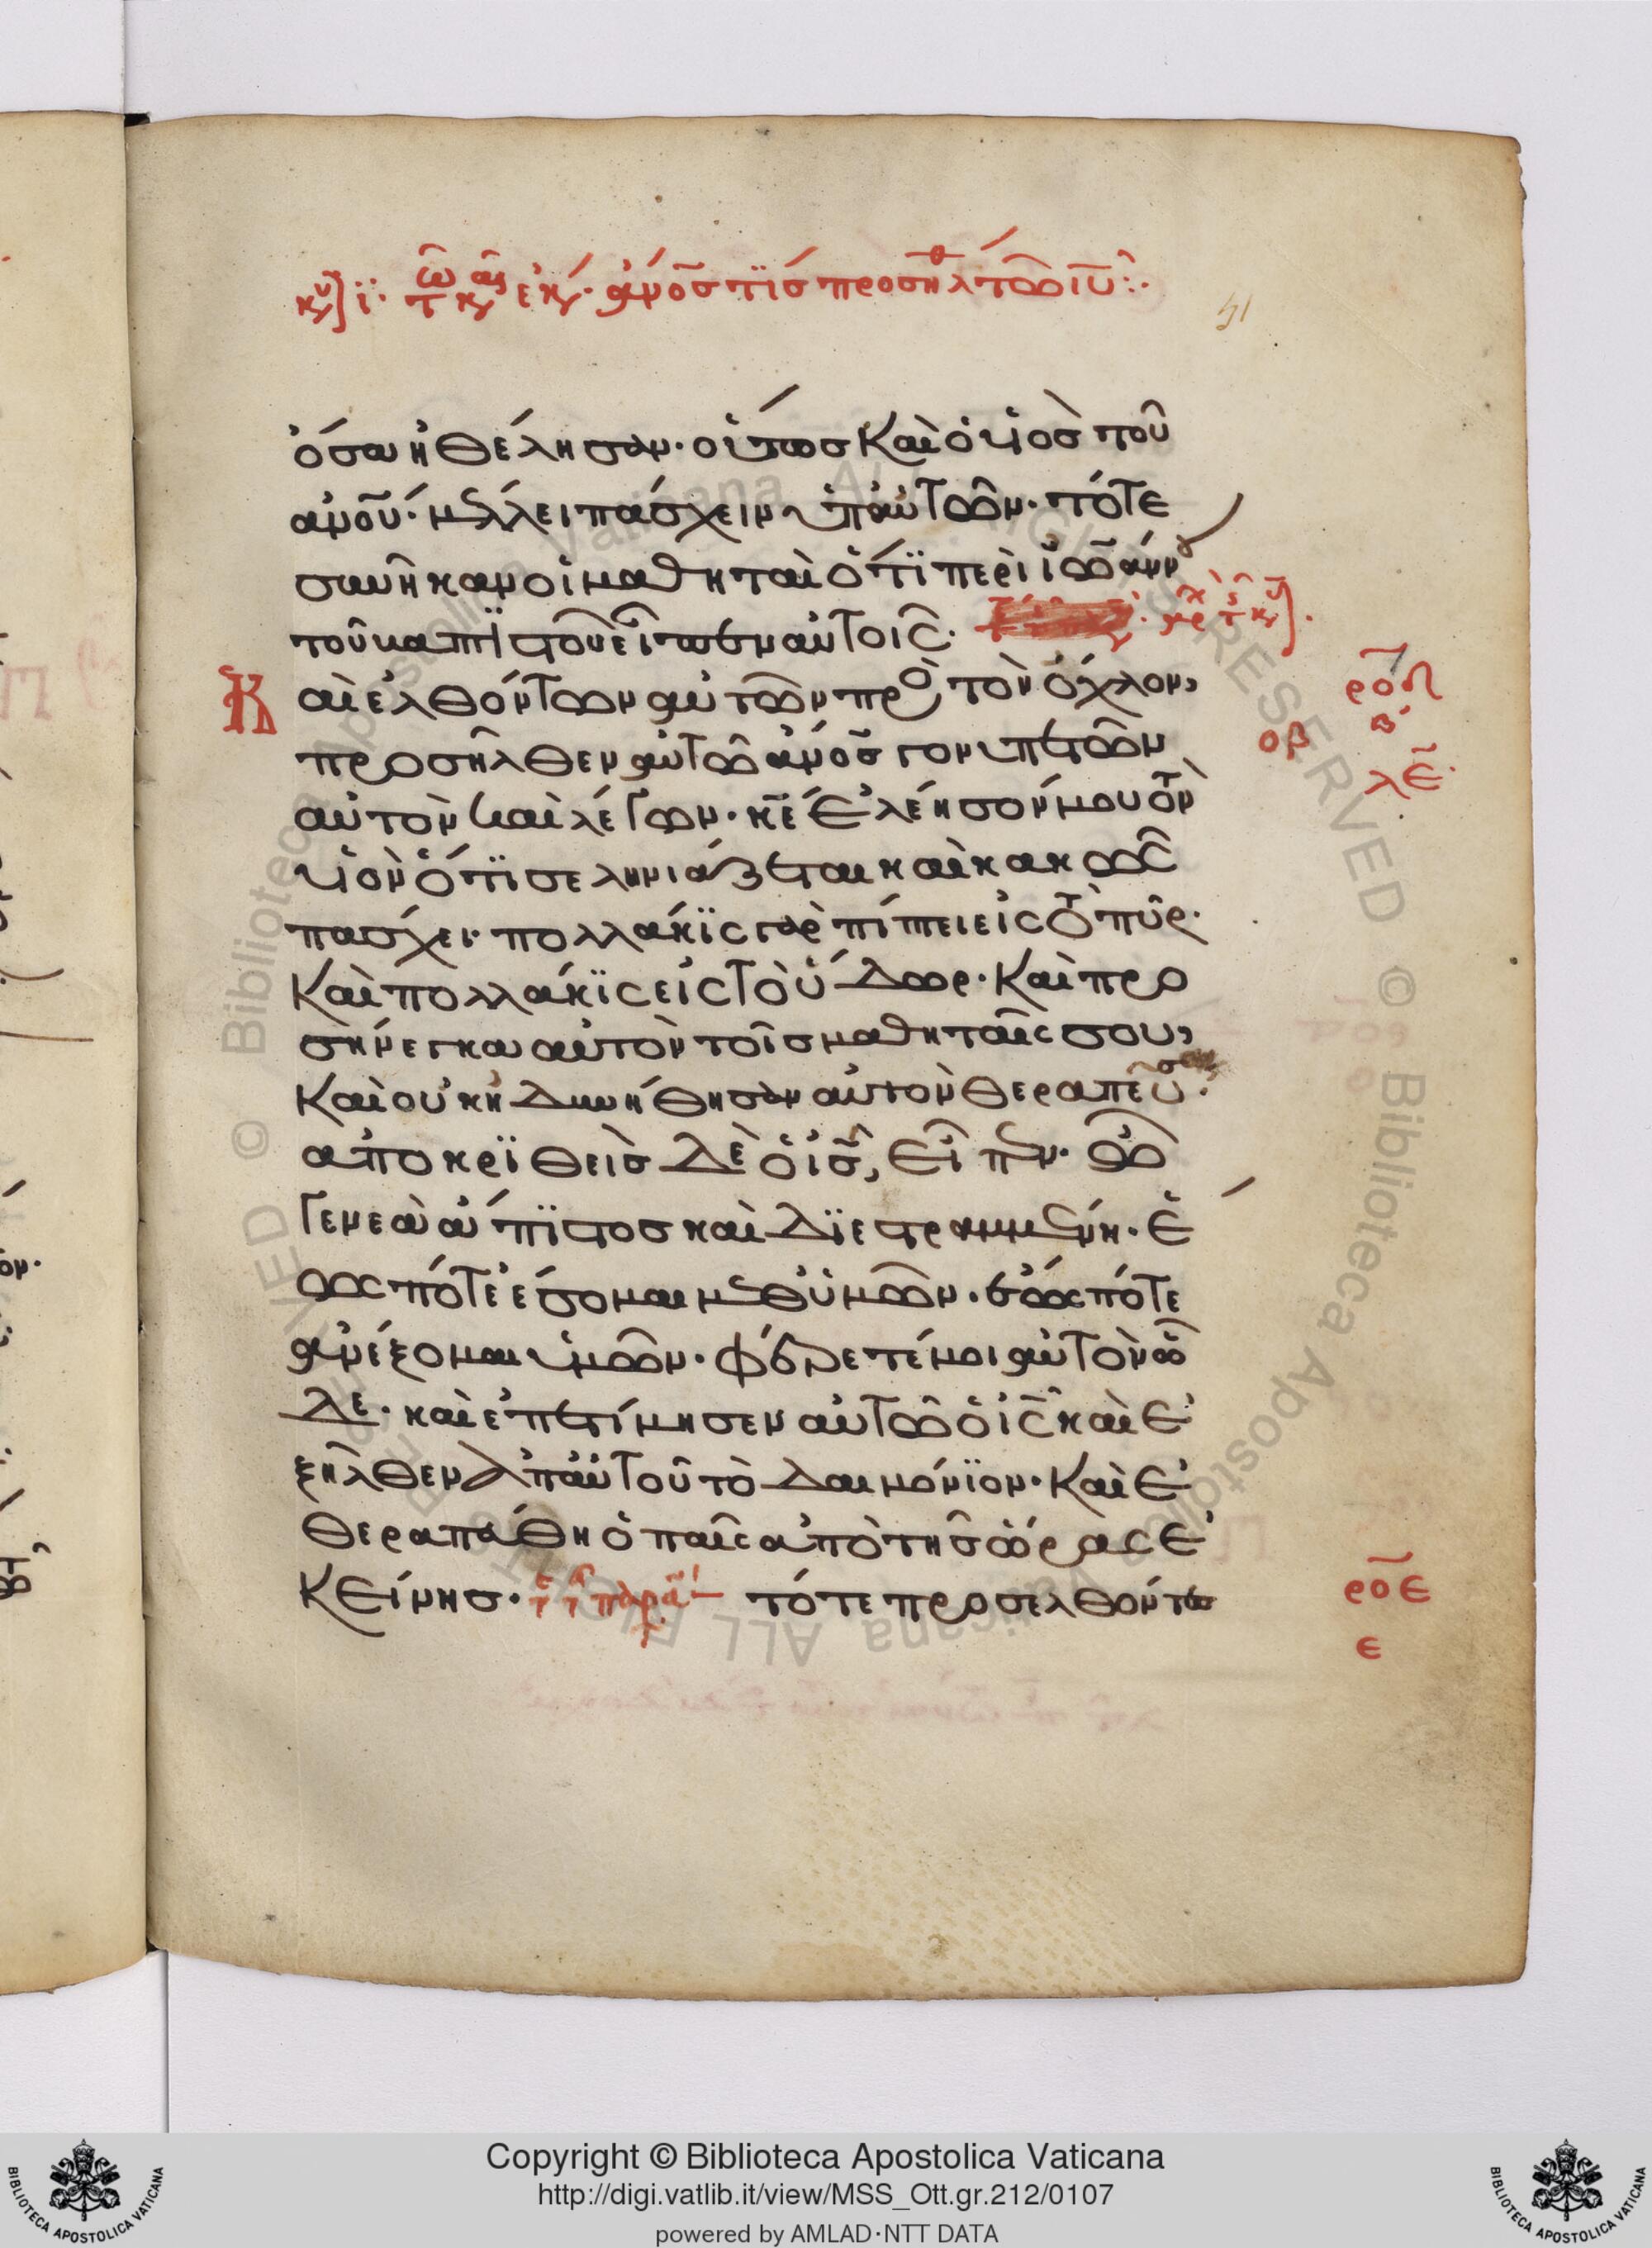 κυ] ϊ· τῷ κῷ ἐκ· ἀνοσ τϊσ προσῆλθ τῶ ιῦ:·
51
ὅσα ἠθέλησαν· οὕτωσ Καὶ ὁ υἱοσ τοῦ
ἀνοῦ· μέλλει πάσχειν ὑπ' αὐτῶν· τότε
συνῆκαν οἱ μαθηταὶ ὅτϊ περὶ ἰωάννου
τοῦ βαπτϊστοῦ εἶπεν αὐτοῖς·
Καὶ ἐλθόντων αὐτῶν πρὸς τὸν ὄχλον,
προσῆλθεν αὐτῶ ἀνοσ γονυπετῶν
αὐτὸν καὶ λέγων· κε ἐλέησόν μου τὸν
υἱὸν ὅτϊ σεληνιάζεται καὶ κακῶς
πάσχει· πολλάκϊς γὰρ πίπτει εἰς τὸ πῦρ·
Καὶ πολλάκϊς εἰς τὸ ὕδωρ· Καὶ προ
σήνεγκα αὐτὸν τοῖσ μαθηταῖς σου,
Καὶ οὐκ ἠδυνήθησαν αὐτὸν θεραπεῦσαι·
ἀποκρϊθεὶσ δὲ ὁ ισ, εἶπεν· ὦ
γενεὰ ἄπϊστοσ καὶ δϊεστραμμένη· ἕ
ως πότε ἔσομαι μεθ' ὑμῶν· ἕως πότε
ἀνέξομαι ὑμῶν· φέρετέ μοι αὐτὸν ὧ
δε· καὶ ἐπετίμησεν αὐτῶ ὁ ις καὶ ἐ
ξῆλθεν ἀπ' αὐτοῦ τὸ δαιμόνϊον· Καὶ ἐ
θεραπεύθη ὁ παῖς ἀπὸ τῆσ ὥρας ἐ
κείνησ· τότε προσελθόντες
ροδ
β
οβ
λε
ροε
ε
Copyright © Biblioteca Apostolica Vaticana
http://digi.vatlib.it/view/MSS_Ott.gr.212/0107
powered by AMLAD·NTT DATA